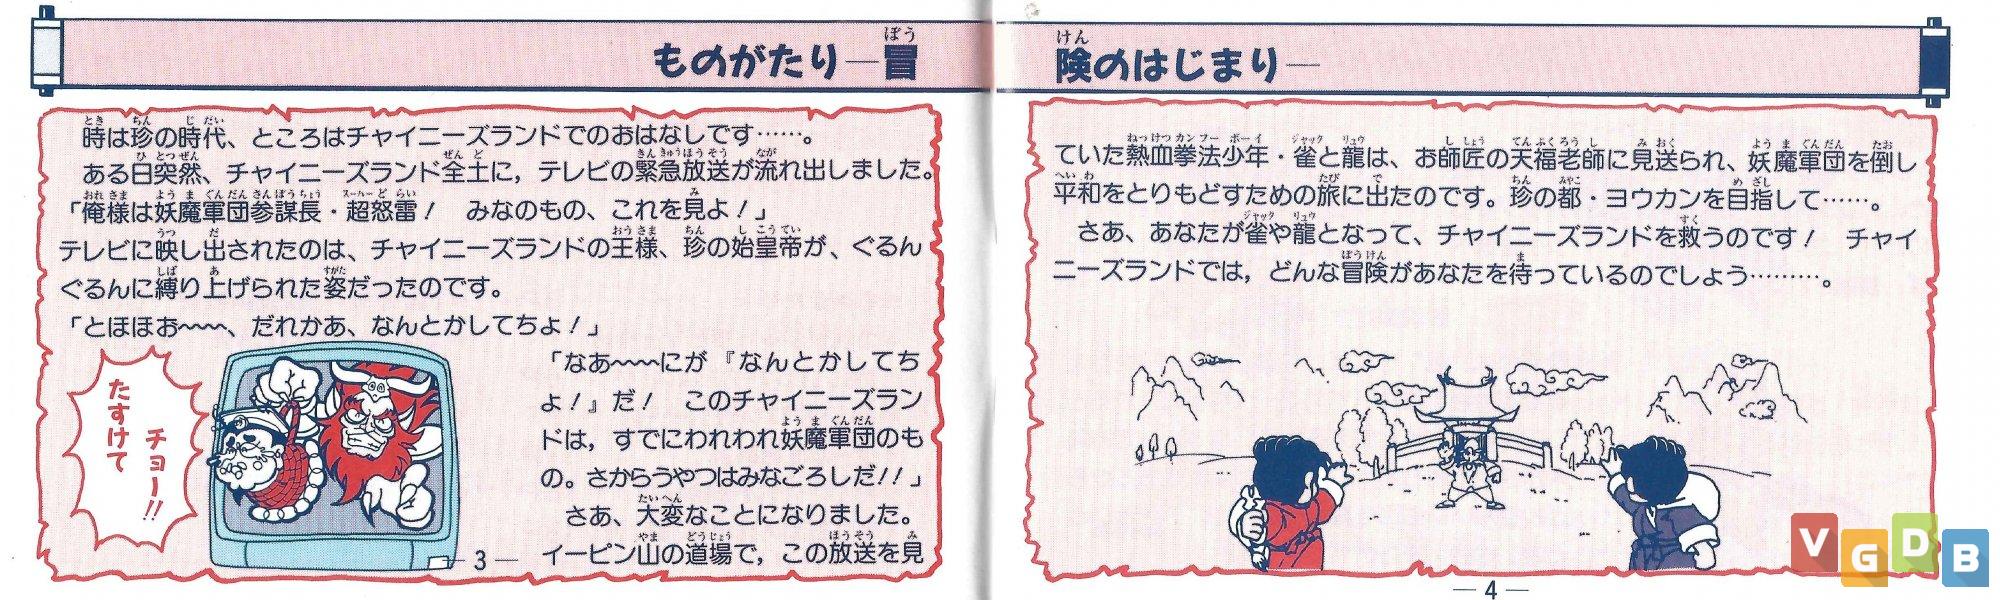 ものがたり―冒
時は珍の時代、ところはチャイニーズランドでのおはなしです……。
ある日突然、チャイニーズランド全土に，テレビの緊急放送が流れ出しました。
「俺様は妖魔軍団参謀長・超怒雷！　みなのもの、これを見よ！」
テレビに映し出されたのは、チャイニーズランドの王様、珍の始皇帝が、ぐるん
ぐるんに縛り上げられた姿だったのです。
「とほほお〜〜〜、だれかあ、なんとかしてちよ！」
たすけて
チョー!!
「なあ〜〜〜にが『なんとかしてち
よ！』だ！　このチャイニーズラン
ドは，すでにわれわれ妖魔軍団のも
の。さからうやつはみなごろしだ!!」
さあ、大変なことになりました。
イーピン山の道場で，この放送を見
―3―
険のはじまり―
ていた熱血拳法少年・雀と龍は、お師匠の天福老師に見送られ、妖魔軍団を倒し
平和をとりもどすための旅に出たのです。珍の都・ヨウカンを目指して……。
さあ、あなたが雀や龍となって、チャイニーズランドを救うのです！　チャイ
ニーズランドでは，どんな冒険があなたを待っているのでしょう………。
―4―
VGDB